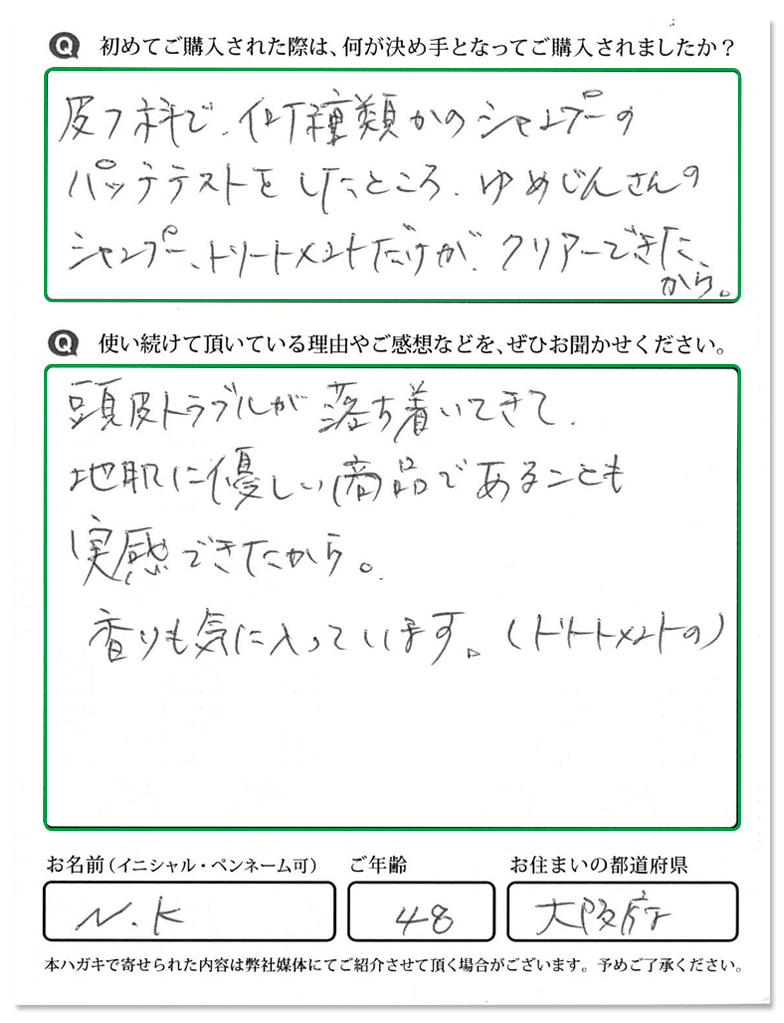 Q 初めてご購入された際は、何が決め手となってご購入されましたか？
皮フ科で、何種類かのシャンプーの
パッチテストをしたところ、ゆめじんさんの
シャンプー、トリートメントだけが、クリアーできた
から。
Q 使い続けて頂いている理由やご感想などを、ぜひお聞かせください。
頭皮トラブルが落ち着いてきて、
地肌に優しい商品であることも
実感できたから。
香りも気に入っています。(トリートメントの)
お名前（イニシャル・ペンネーム可） ご年齢 お住まいの都道府県
N.K 48 大阪府
本ハガキで寄せられた内容は弊社媒体にてご紹介させて頂く場合がございます。予めご了承ください。